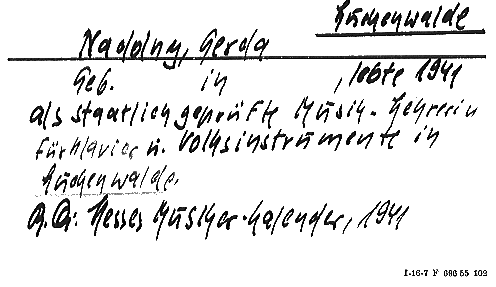 Luckenwalde
Nadolny, Gerda
Geb. in , lebte 1941
als staatlich geprüfte Musik-Lehrerin
für Klavier u. Volksinstrumente in
Luckenwalde.
A.Q: Hesses Musiker-Kalender, 1941
I-16-7 F 686 55 102